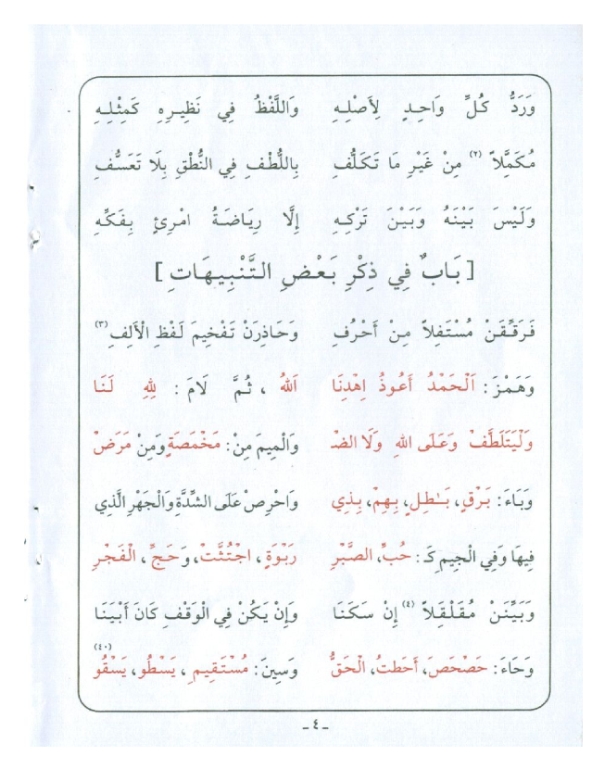 وَرَدُّ كُلِّ وَاحِدٍ لِأَصْلِهِ وَاللَّفْظُ فِي نَظِيرِهِ كَمِثْلِهِ
مُكَمَّلاً (٢) مِنْ غَيْرِ مَا تَكَلُّفِ بِاللُّطْفِ فِي النُّطْقِ بِلَا تَعَسُّفِ
وَلَيْسَ بَيْنَهُ وَبَيْنَ تَرْكِهِ إِلَّا رِيَاضَةُ امْرِئٍ بِفَكِّهِ
[ بَابٌ فِي ذِكْرِ بَعْضِ التَّنْبِيهَاتِ ]
فَرَقِّقَنْ مُسْتَفِلاً مِنْ أَحْرُفِ وَحَاذِرَنْ تَفْخِيمَ لَفْظِ الْأَلِفِ (٣)
وَهَمْزَ : اَلْحَمْدُ أَعُوذُ اِهْدِنَا اَللهُ ، ثُمَّ لَامَ : لِلهِ لَنَا
وَلْيَتَلَطَّفْ وَعَلَى اللهِ وَلَا الضْـ وَالْمِيمَ مِنْ : مَخْمَصَةٍ وَمِنْ مَرَضْ
وَبَاءَ : بَرْقٍ، بَـٰطِلٍ، بِهِمْ، بِذِي وَاحْرِصْ عَلَى الشِّدَّةِ وَالْجَهْرِ الَّذِي
فِيهَا وَفِي الْجِيمِ كَـ : حُبِّ، الصَّبْرِ رَبْوَةٍ، اجْتُثَّتْ، وَحَجِّ، الْفَجْرِ
وَبَيِّنَنْ مُقَلْقَلاً (٤) إِنْ سَكَنَا وَإِنْ يَكُنْ فِي الْوَقْفِ كَانَ أَبْيَنَا
وَحَاءَ : حَصْحَصَ، أَحَطتُ، الْحَقُّ وَسِينَ : مُسْتَقِيمِ ، يَسْطُو، يَسْقُو (٤٠)
-٤-